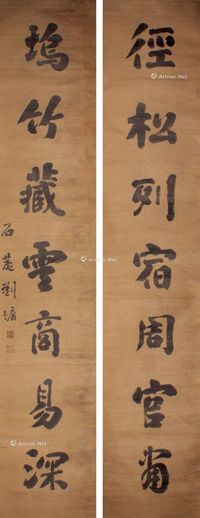 徑松列宿周官
塢竹藏雲商易深
石菴劉墉
Artron.Net
Artron.Net
Artron.Net
Artron.Net